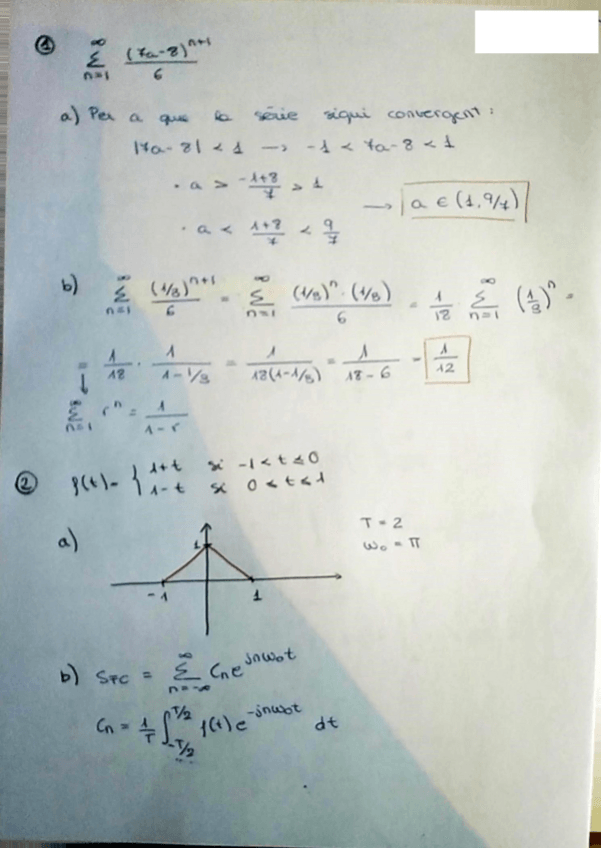 ① ∞ Σ n=1 (7a-8)^{n+1} / 6
a) Per a que la sèrie sigui convergent:
|7a-8| < 1 → -1 < 7a-8 < 1
· a > (-1+8)/7 > 1
→ a ∈ (1, 9/7)
· a < (1+8)/7 < 9/7
b) ∞ Σ n=1 (1/3)^{n+1} / 6 = ∞ Σ n=1 (1/3)^n · (1/3) / 6 = 1/18 · ∞ Σ n=1 (1/3)^n =
= 1/18 · 1/(1-1/3) = 1/(18(1-1/3)) = 1/(18-6) = 1/12
↓
∞ Σ n=1 r^n = 1/(1-r)
② f(t) = { 1+t si -1 < t ≤ 0
1-t si 0 ≤ t ≤ 1
a) T = 2
ω₀ = π
1
-1 1
b) SFC = ∞ Σ n=-∞ Cn e^{jnω₀t}
Cn = 1/T ∫_{-T/2}^{T/2} f(t) e^{-jnω₀t} dt